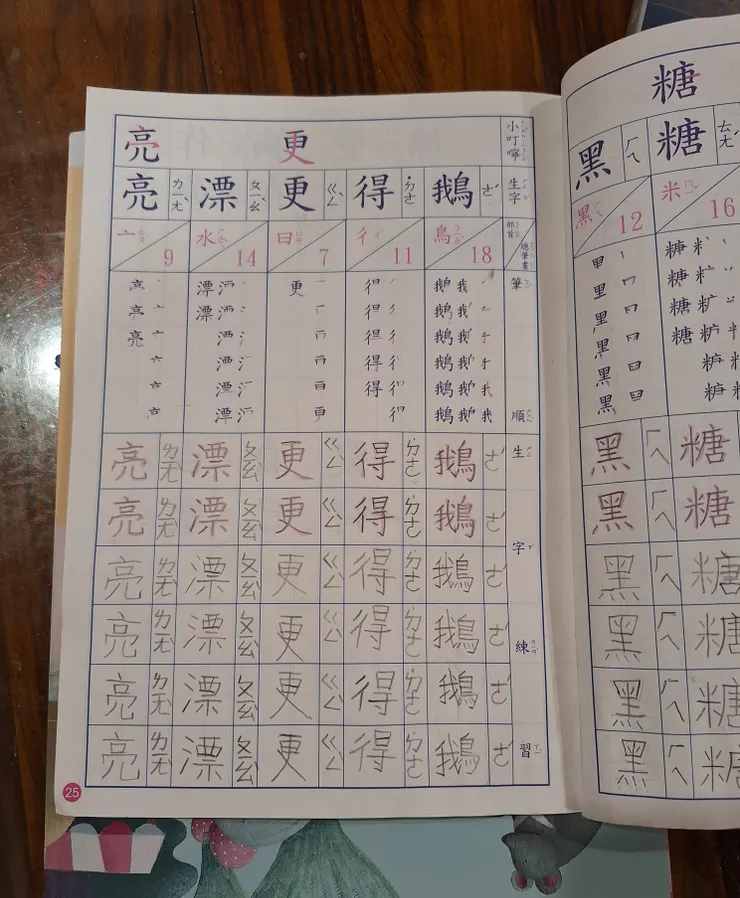 亮 更 小叮嚀
亮 ㄌㄧㄤˋ 漂 ㄆㄧㄠˋ 更 ㄍㄥˋ 得 ˙ㄉㄜ 鵝 ㄜˊ 生字
亠 9 水 14 曰 7 彳 11 鳥 18 部首 總筆畫
筆順
亮 ㄌㄧㄤˋ 漂 ㄆㄧㄠˋ 更 ㄍㄥˋ 得 ˙ㄉㄜ 鵝 ㄜˊ 生字練習
亮 ㄌㄧㄤˋ 漂 ㄆㄧㄠˋ 更 ㄍㄥˋ 得 ˙ㄉㄜ 鵝 ㄜˊ
亮 ㄌㄧㄤˋ 漂 ㄆㄧㄠˋ 更 ㄍㄥˋ 得 ˙ㄉㄜ 鵝 ㄜˊ
亮 ㄌㄧㄤˋ 漂 ㄆㄧㄠˋ 更 ㄍㄥˋ 得 ˙ㄉㄜ 鵝 ㄜˊ
亮 ㄌㄧㄤˋ 漂 ㄆㄧㄠˋ 更 ㄍㄥˋ 得 ˙ㄉㄜ 鵝 ㄜˊ
亮 ㄌㄧㄤˋ 漂 ㄆㄧㄠˋ 更 ㄍㄥˋ 得 ˙ㄉㄜ 鵝 ㄜˊ
25
糖
黑 ㄏㄟ 糖 ㄊㄤˊ
黑 12 米 16
黑 ㄏㄟ 糖
黑 ㄏㄟ 糖
黑 ㄏㄟ 糖
黑 ㄏㄟ 糖
黑 ㄏㄟ 糖
黑 ㄏㄟ